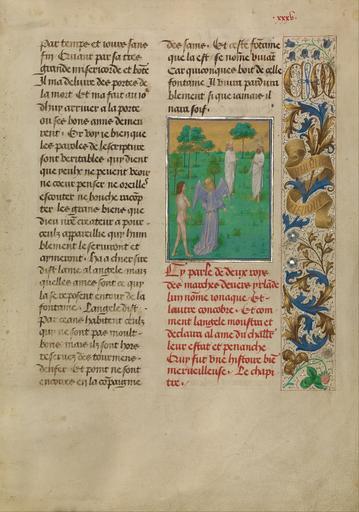 .xxxv.
par temps et jours sans
fin Quant par sa tres
grande misericorde et bonte
Il ma delivre des portes de
la mort Et ma fait au jo
dhuy arriver a la porte
ou ses bons anes demeu
rent. Or voy je bien que
les paroles de lescripture
sont veritables qui dient
que yeulx ne peuent veoir
ne coeur penser ne oreille
escouter ne bouche racop
ter les grans biens que
dieu nre createur a pour
ceulx appareillie qui hum
blement le serviront et
aymeront. Ha a chier sire
dist lame a langele mais
quelles ames sont ce qui
la se reposent entour de la
fontaine. Langele dist.
Par ceans habitent ceulx
qui ne sont pas moult
bons mais ilz sont hors
reservez des tourmens
denfer. Et point ne sont
encoires en la compaignie
des sains. Et ceste fontaine
que la est se nome vivant
Car quiconques boit de celle
fontaine Il vivra pardura
blement si que jamais il
naura soif.
Cy parle de deux roys
des marches devers yrlade
lun nome conaque Et
lautre concobre. Et com
ment langele monstra et
declaira al ame du chlr
leur estat et penance
Qui fut une histoire bien
merveilleuse. Le chapi
tre.